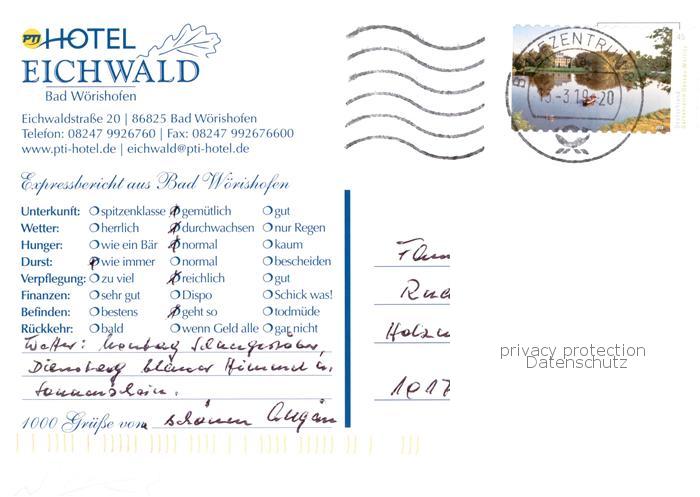 PTI HOTEL
EICHWALD
Bad Wörishofen
Eichwaldstraße 20 | 86825 Bad Wörishofen
Telefon: 08247 9926760 | Fax: 08247 992676600
www.pti-hotel.de | eichwald@pti-hotel.de
Expressbericht aus Bad Wörishofen
Unterkunft: spitzenklasse gemütlich gut
Wetter: herrlich durchwachsen nur Regen
Hunger: wie ein Bär normal kaum
Durst: wie immer normal bescheiden
Verpflegung: zu viel reichlich gut
Finanzen: sehr gut Dispo Schick was!
Befinden: bestens geht so todmüde
Rückkehr: bald wenn Geld alle gar nicht
Wetter: Montag Schneegestöber,
Dienstag blauer Himmel u.
Sonnenschein.
1000 Grüße vom schönen Allgäu
BRIEFZENTRUM
45
Fam
Holzm
1017
privacy protection
Datenschutz